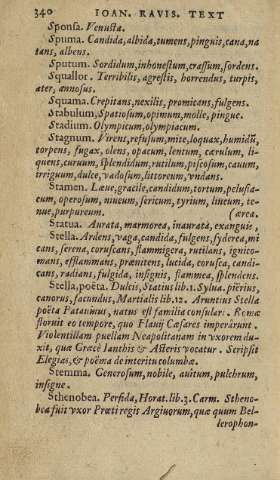 340 IOAN. RAVIS. TEXT
Sponsa. Venusta.
Spuma. Candida, albida, tumens, pinguis, cana, na
tans, albens.
Sputum. Sordidum, inhonestum, crassum, sordens.
Squallor. Terribilis, agrestis, horrendus, turpis,
ater, annosus.
Squama. Crepitans, nexilis, promicans, fulgens.
Stabulum, Spatiosum, opimum, molle, pingue.
Stadium. Olympicum, olympiacum.
Stagnum. Virens, refusum, mite, loquax, humidũ,
torpens, fugax, olens, opacum, lentum, cærulum, li-
quens, curuum, splendidum, rutilum, piscosum, cauum,
irriguum, dulce, vadosum, littoreum, vndans.
Stamen. Læue, gracile, candidum, tortum, pelusia-
cum, operosum, niueum, sericum, tyrium, lineum, te-
nue, purpureum. (ærea.
Statua. Aurata, marmorea, inaurata, exanguis,
Stella. Ardens, vaga, candida, fulgens, syderea, mi
cans, serena, coruscans, flammigera, rutilans, ignico-
mans, æstammans, prænitens, lucida, corusca, candi-
cans, radians, fulgida, insignis, flammea, splendens.
Stella, poëta. Dulcis, Statius lib. 1. Sylua. piërius,
canorus, facundus, Martialis lib. 12. Aruntius Stella
poëta Patauinus, natus est familia consulari: Romæ
floruit eo tempore, quo Flauij Cæsares imperârunt.
Violentillam puellam Neapolitanam in vxorem du-
xit, quæ Græcè Ianthis & Asteris vocatur. Scripsit
Elegias, & poëma de interitu columbæ.
Stemma. Generosum, nobile, auitum, pulchrum,
insigne.
Sthenobea. Perfida, Horat. lib. 3. Carm. Stheno-
bea fuit vxor Præti regis Argiuorum, quæ quum Bel-
lerophon-